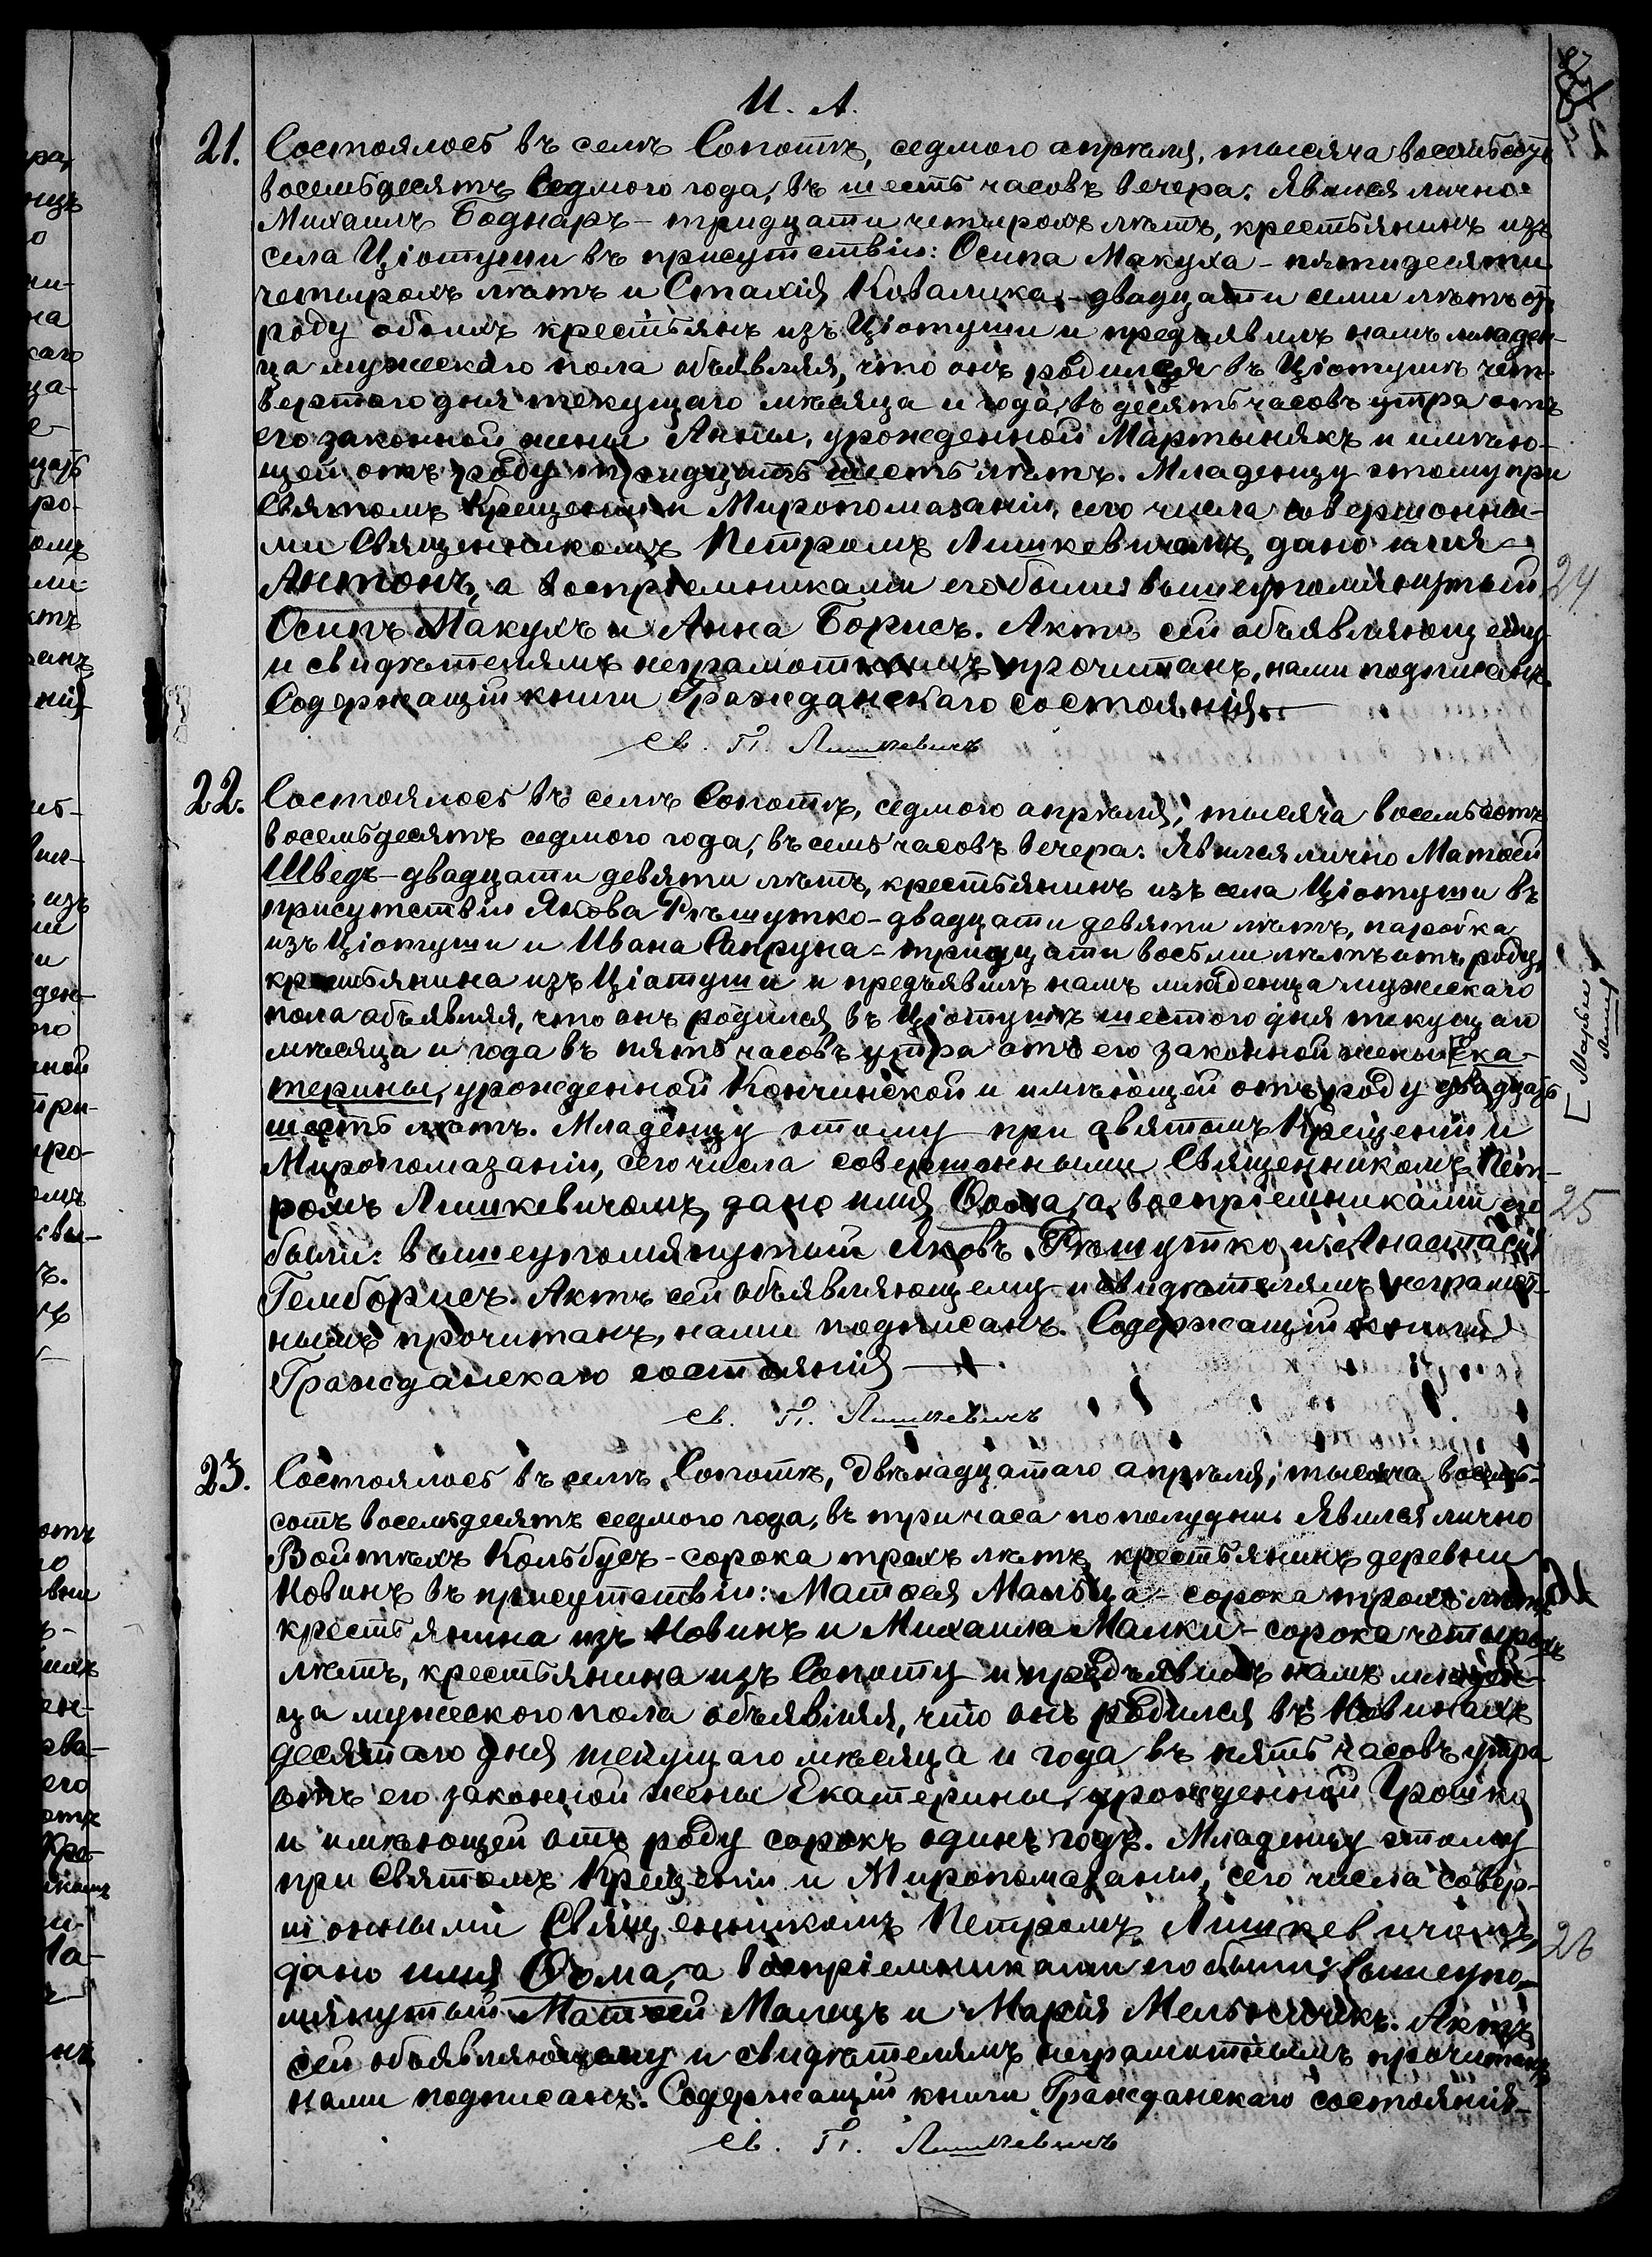 И. А.
21. Состоялось въ селѣ Сопотѣ, седмого апрѣля, тысяча восемьсотъ
восемьдесятъ седмого года, въ шесть часовъ вечера. Явился лично
Михаилъ Боднаръ – тридцати четырохъ лѣтъ, крестьянинъ изъ
села Ціотуши въ присутствіи: Осипа Макуха – пятидесяти
четырохъ лѣтъ и Стахія Ковалика, – двадцати семи лѣтъ отъ
роду обоихъ крестьянъ изъ Ціотуши и предъявилъ намъ младен-
ца мужескаго пола объявляя, что онъ родился въ Ціотушѣ чет-
вертого дня текущаго мѣсяца и года, въ десять часовъ утра отъ
его законной жены Анны, урожденной Мартынякъ и имѣю-
щей отъ роду тридцать шесть лѣтъ. Младенцу этому при
Святомъ Крещеніи и Миропомазаніи, сего числа совершонны-
ми Священникомъ Петромъ Лишкевичомъ, дано имя
Антонъ, а воспріемниками его были: вышеупомянутый 24
Осипъ Макухъ и Анна Борисъ. Актъ сей объявляющему
и свидѣтелямъ неграмотнымъ прочитанъ, нами подписанъ.
Содержащій книги Гражданскаго состоянія.
Св. П. Лишкевичъ
22. Состоялось въ селѣ Сопотѣ, седмого апрѣля, тысяча восемьсотъ
восемьдесятъ седмого года, въ семь часовъ вечера. Явился лично Матѳей
Шведъ – двадцати девяти лѣтъ, крестьянинъ изъ села Ціотуши въ
присутствіи Якова Рѣшутко – двадцати девяти лѣтъ, паробка
изъ Ціотуши и Ивана Сапруна – тридцати восьми лѣтъ отъ роду,
крестьянина изъ Ціотуши и предъявилъ намъ младенца мужескаго
пола объявляя, что онъ родился въ Ціотушѣ шестого дня текущаго
мѣсяца и года въ пять часовъ утра отъ его законной жены [Ека-
терины, урожденной Кончинской и имѣющей отъ роду двадцать
[Марыи
шесть лѣтъ. Младенцу этому при святомъ Крещеніи и
Миропомазаніи, сего числа совершонными Священникомъ Пет-
ромъ Лишкевичомъ, дано имя Ѳома, а воспріемниками его 25
были: вышеупомянутый Яковъ Рѣшутко и Анастасія
Гемборисъ. Актъ сей объявляющему и свидѣтелямъ неграмот-
нымъ прочитанъ, нами подписанъ. Содержащій книги
Гражданскаго состоянія
Св. П. Лишкевичъ
23. Состоялось въ селѣ Сопотѣ, двѣнадцатаго апрѣля, тысяча восемь-
сотъ восемьдесятъ седмого года, въ три часа пополудни. Явился лично
Войтѣхъ Кольбусъ – сорока трохъ лѣтъ крестьянинъ деревни
Новинъ въ присутствіи: Матѳея Мальца – сорока трохъ лѣтъ
крестьянина изъ Новинъ и Михаила Малки – сорока четырохъ
лѣтъ, крестьянина изъ Сопоту и предъявилъ намъ младен-
ца мужеского пола объявляя, что онъ родился въ Новинахъ
десятаго дня текущаго мѣсяца и года въ пять часовъ утра
отъ его законной жены Екатерины, урожденной Грошко
и имѣющей отъ роду сорокъ одинъ годъ. Младенцу этому
при Святомъ Крещеніи и Миропомазаніи, сего числа совер-
шонными Священникомъ Петромъ Лишкевичомъ, 26
дано имя Ѳома, а воспріемниками его были: вышеупо-
мянутый Матѳей Малецъ и Марія Мельничекъ. Актъ
сей объявляющому и свидѣтелямъ неграмотнымъ прочитанъ
нами подписанъ. Содержащій книги Гражданскаго состоянія
Св. П. Лишкевичъ